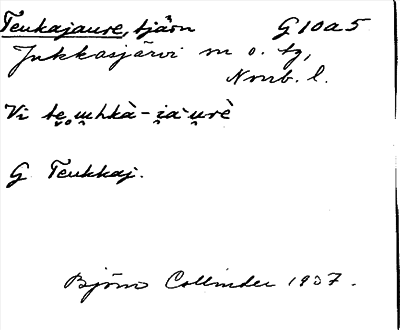 Teukajaure, tjärn G 10 a 5
Jukkasjärvi sn o. tg,
Norrb. l.
Vi te̬u̯hkà-i̯ȧu̯rè
G Teukkaj.
Björn Collinder 1937.